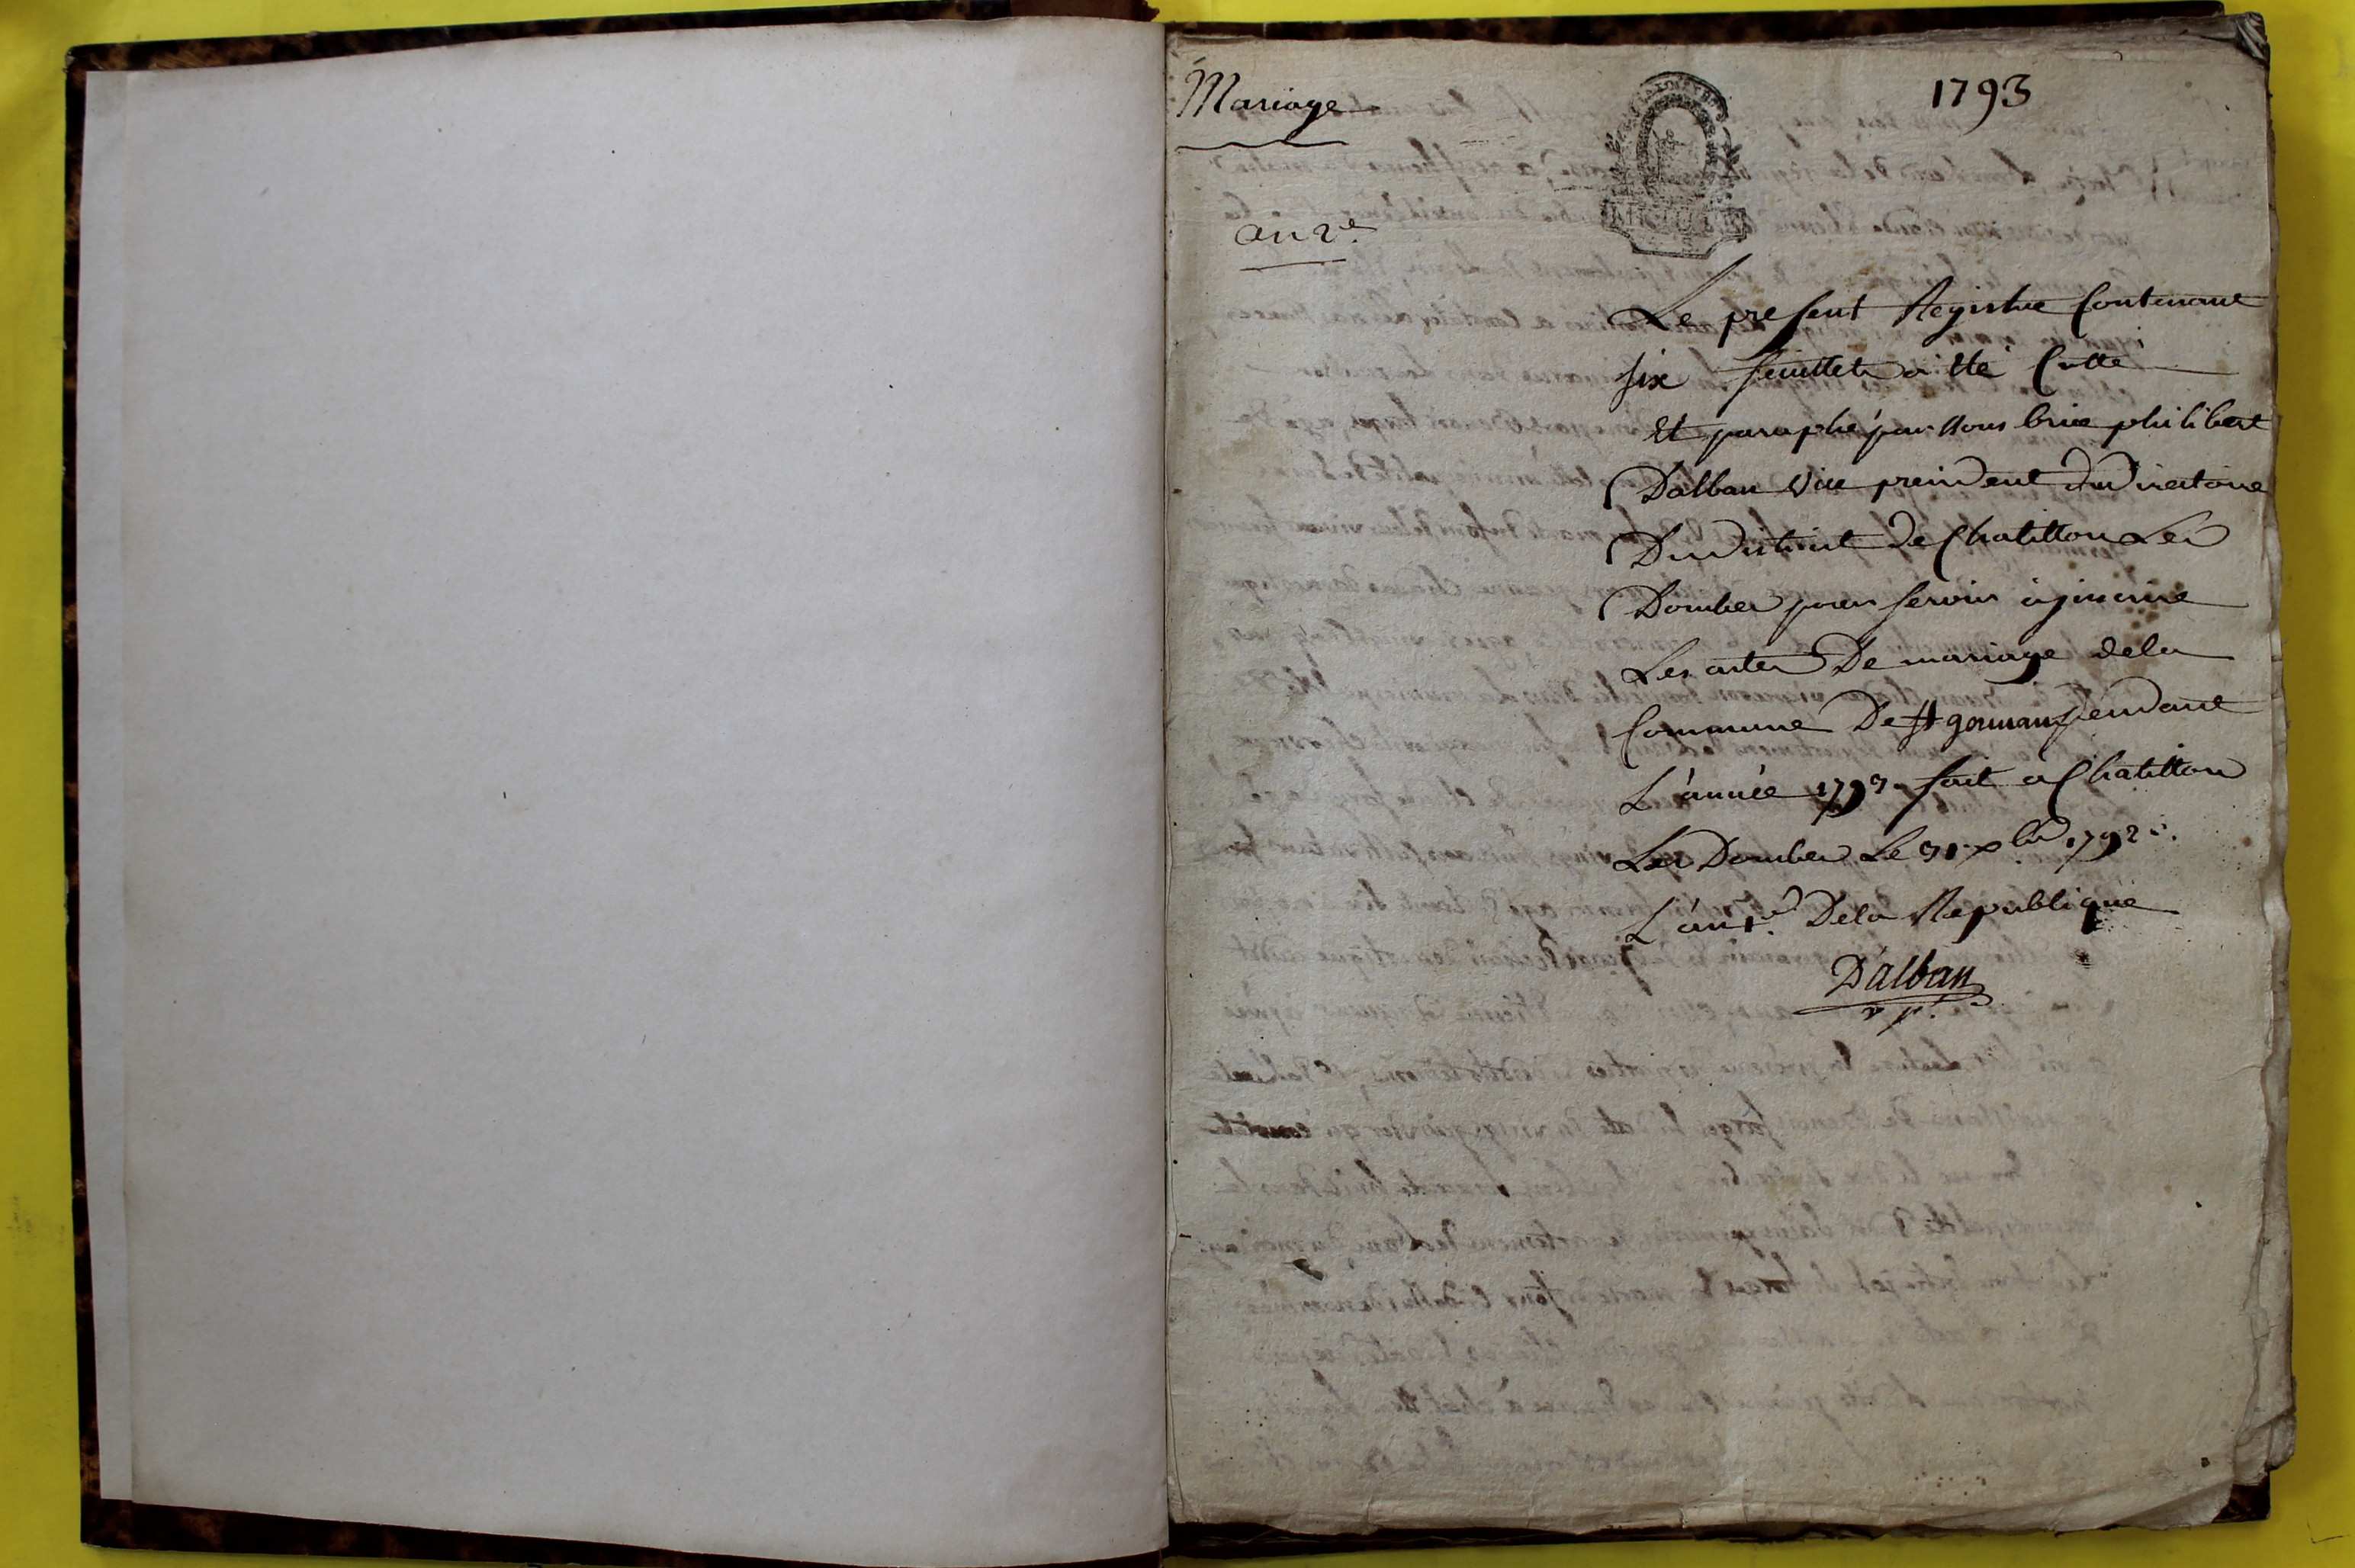 Mariage
1793
an 2e.
Le present Registre Contenant
six feuillets a été Cotté
Et paraphé par Nous brice philibert
Dalban Vice president du Directoire
Du District De Chatillon Les
Dombes pour servir a jnscrire
Les actes De mariage dela
Commune De St germain pendant
L'année 1793. fait a Chatillon
Les Dombes Le 31. xbre 1792.
L'an 1.er Dela Republique
Dalban
v p.